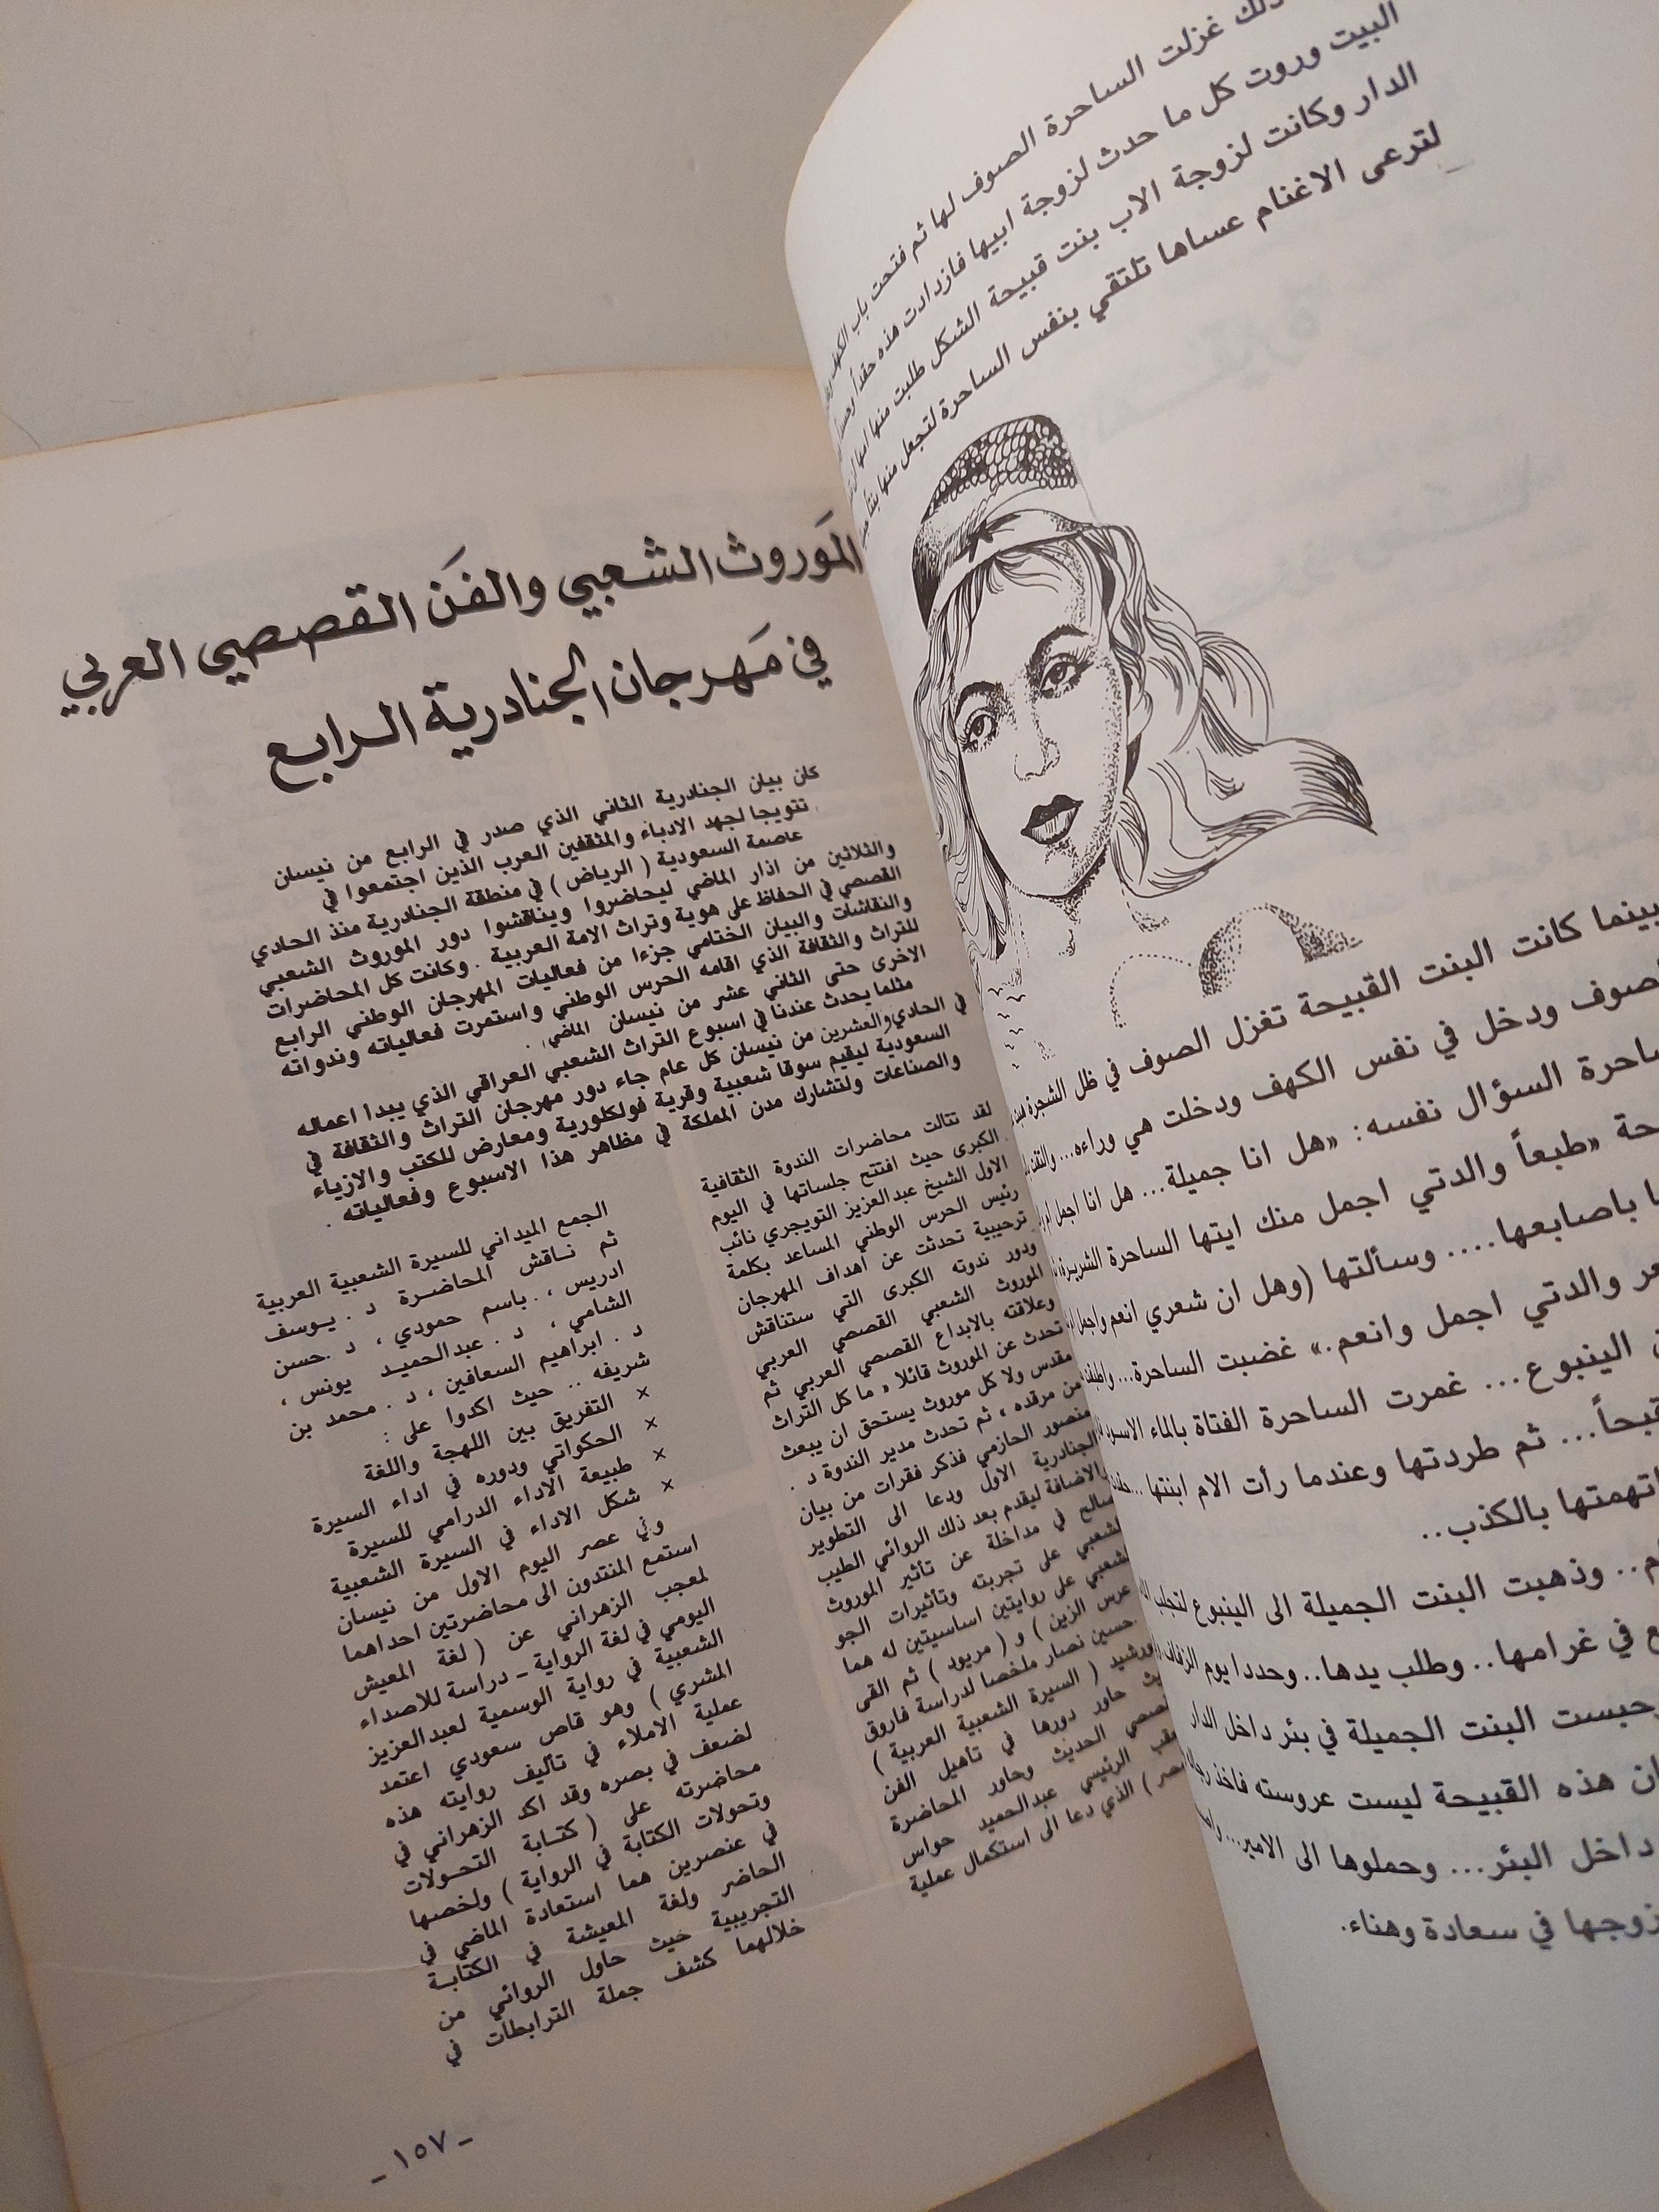 ذلك غزلت الساحرة الصوف لها ثم فتحت باب الكهف
البيت وروت كل ما حدث لزوجة ابيها فازدادت هذه حقداً
الدار وكانت لزوجة الاب بنت قبيحة الشكل طلبت منها امها
لترعى الاغنام عساها تلتقي بنفس الساحرة لتجعل منها بنتاً
بينما كانت البنت القبيحة تغزل الصوف في ظل الشجرة
صوف ودخل في نفس الكهف ودخلت هي وراءه...
ساحرة السؤال نفسه: «هل انا جميلة... هل انا اجمل ام
حة «طبعاً والدتي اجمل منك ايتها الساحرة الشريرة
ا باصابعها.... وسألتها (وهل ان شعري انعم واجمل
عر والدتي اجمل وانعم.» غضبت الساحرة...
الينبوع... غمرت الساحرة الفتاة بالماء الاسود
قبحاً... ثم طردتها وعندما رأت الام ابنتها...
اتهمتها بالكذب..
م.. وذهبت البنت الجميلة الى الينبوع لتجلب
ع في غرامها.. وطلب يدها.. وحددا يوم الزفاف
حبست البنت الجميلة في بئر داخل الدار
ان هذه القبيحة ليست عروسته فاخذ
داخل البئر... وحملوها الى الامير...
زوجها في سعادة وهناء.
الموروث الشعبي والفن القصصي العربي
في مهرجان الجنادرية الرابع
كان بيان الجنادرية الثاني الذي صدر في الرابع من نيسان
تتويجا لجهد الادباء والمثقفين العرب الذين اجتمعوا في
عاصمة السعودية ( الرياض ) في منطقة الجنادرية منذ الحادي
والثلاثين من اذار الماضي ليحاضروا ويناقشوا دور الموروث الشعبي
القصصي في الحفاظ على هوية وتراث الامة العربية . وكانت كل المحاضرات
والنقاشات والبيان الختامي جزءا من فعاليات المهرجان الوطني الرابع
للتراث والثقافة الذي اقامه الحرس الوطني واستمرت فعالياته وندواته
الاخرى حتى الثاني عشر من نيسان الماضي .
مثلما يحدث عندنا في اسبوع التراث الشعبي العراقي الذي يبدا اعماله
في الحادي والعشرين من نيسان كل عام جاء دور مهرجان التراث والثقافة في
السعودية ليقيم سوقا شعبية وقرية فولكلورية ومعارض للكتب والازياء
والصناعات ولتشارك مدن المملكة في مظاهر هذا الاسبوع وفعالياته .
لقد تتالت محاضرات الندوة الثقافية
الكبرى حيث افتتح جلساتها في اليوم
الاول الشيخ عبدالعزيز التويجري نائب
رئيس الحرس الوطني المساعد بكلمة
ترحيبية تحدثت عن أهداف المهرجان
ودور ندوته الكبرى التي ستناقش
الموروث الشعبي القصصي العربي
وعلاقته بالابداع القصصي العربي ثم
تحدث عن الموروث قائلا « ما كل التراث
مقدس ولا كل موروث يستحق ان يبعث
من مرقده ، ثم تحدث مدير الندوة د .
منصور الحازمي فذكر فقرات من بيان
الجنادرية الاول ودعا الى التطوير
والاضافة ليقدم بعد ذلك الروائي الطيب
صالح في مداخلة عن تأثير الموروث
الشعبي على تجربته وتأثيرات الجو
الشعبي على روايتين اساسيتين له هما
عرس الزين ) و ( مريود ) ثم القى
حسين نصار ملخصا لدراسة فاروق
خورشيد ( السيرة الشعبية العربية )
حيث حاور دورها في تأهيل الفن
القصصي الحديث وحاور المحاضرة
المعقب الرئيسي عبدالحميد حواس
مصر ) الذي دعا الى استكمال عملية
الجمع الميداني للسيرة الشعبية العربية
ثم ناقش المحاضرة د . يوسف
ادريس ، باسم حمودي ، د . حسن
الشامي ، د . عبدالحميد يونس ،
د . ابراهيم السعافين ، د . محمد بن
شريفه .. حيث اكدوا على :
× التفريق بين اللهجة واللغة
× الحكواتي ودوره في اداء السيرة
× طبيعة الأداء الدرامي للسيرة
× شكل الاداء في السيرة الشعبية
وفي عصر اليوم الاول من نيسان
استمع المنتدون الى محاضرتين احداهما
لمعجب الزهراني عن ( لغة المعيش
اليومي في لغة الرواية - دراسة للاصداء
الشعبية في رواية الوسمية لعبدالعزيز
المشري ) وهو قاص سعودي اعتمد
عملية الاملاء في تأليف روايته هذه
لضعف في بصره وقد اكد الزهراني في
محاضرته على ( كتابة التحولات
وتحولات الكتابة في الرواية ) ولخصها
في عنصرين هما استعادة الماضي في
الحاضر ولغة المعيشة في الكتابة
التجريبية حيث حاول الروائي من
خلالهما كشف جملة الترابطات في
- ١٥٧ -